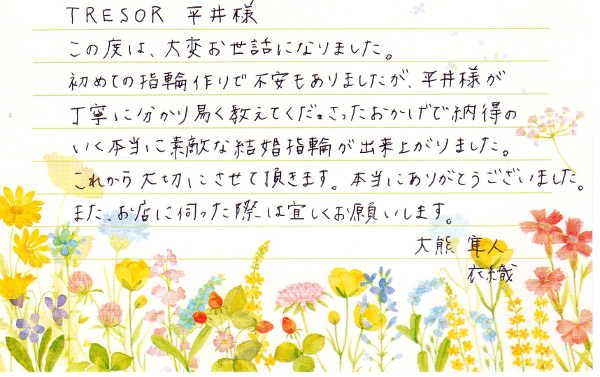 TRESOR 平井様
この度は、大変お世話になりました。
初めての指輪作りで不安もありましたが、平井様が
丁寧に分かり易く教えてくださったおかげで納得の
いく本当に素敵な結婚指輪が出来上がりました。
これから大切にさせて頂きます。本当にありがとうございました。
また、お店に伺った際は宜しくお願いします。
大熊 隼人
衣織